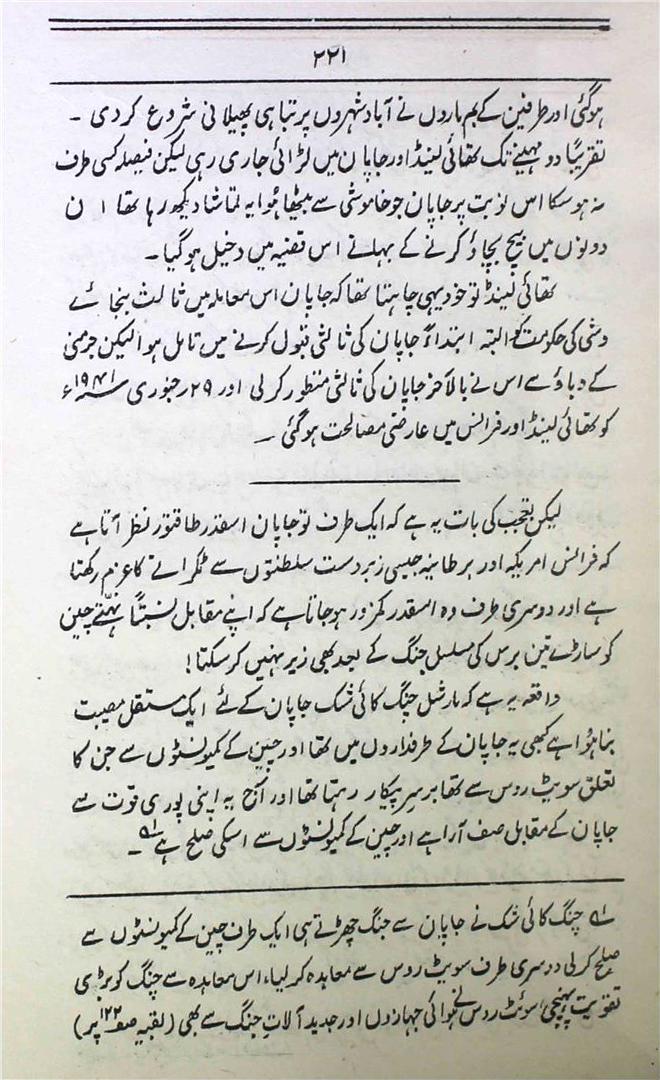 ۲۲۱
ہوگئی اور طرفین کے بم باروں نے آباد شہروں پر تباہی پھیلانی شروع کردی ۔
تقریباً دو مہینے تک تھائی لینڈ اور جاپان میں لڑائی جاری رہی لیکن فیصلہ کسی طرف
نہ ہوسکا اس نوبت پر جاپان جو خاموشی سے بیٹھا ہُوا یہ تماشا دیکھ رہا تھا ا ن
دونوں میں بیچ بچاؤ کرنے کے بہانے اس قضیہ میں دخیل ہو گیا ۔
تھائی لینڈ تو خود یہی چاہتا تھا کہ جاپان اس معاملہ میں ثالث بنجائے
وشی کی حکومت کو البتہ ابتداءً جاپان کی ثالثی قبول کرنے میں تامل ہوا لیکن جرمنی
کے دباؤ سے اس نے بالآخر جاپان کی ثالثی منظور کرلی اور ۲۹ رجنوری ۱۹۴۱ء
کو تھائی لینڈ اور فرانس میں عارضی مصالحت ہوگئی ۔
لیکن تعجب کی بات یہ ہے کہ ایک طرف تو جاپان اسقدر طاقتور نظر آتا ہے
کہ فرانس امریکہ اور برطانیہ جیسی زبردست سلطنتوں سے ٹکرانے کا عزم رکھتا
ہے اور دوسری طرف وہ اسقدر کمزور ہوجاتا ہے کہ اپنے مقابل نسبتاً نہتے چین
کو ساڑے تین برس کی مسلسل جنگ کے بعد بھی زیر نہیں کرسکتا !
واقعہ یہ ہے کہ مارشل چنگ کائی شک جاپان کے لئے ایک مستقل مصیبت
بنا ہُوا ہے کبھی یہ جاپان کے طرفداروں میں تھا اور چین کے کمیونسٹوں سے جن کا
تعلق سویٹ روس سے تھا برسرِ پیکار رہتا تھا اور آج یہ اپنی پوری قوت سے
جاپان کے مقابل صف آرا ہے اور چین کے کمیونسٹوں سے اسکی صلح ہے ؎۱ ۔
؎۱ چنگ کائی شک نے جاپان سے جنگ چھڑتے ہی ایک طرف چین کے کمیونسٹوں سے
صلح کرلی دوسری طرف سویٹ روس سے معاہدہ کرلیا، اس معاہدہ سے چنگ کو بڑی
تقویت پہنچی، سوئٹ روس نے ہوائی جہازوں اور جدید آلاتِ جنگ سے بھی (بقیہ صفحہ ۱۲۲ پر)